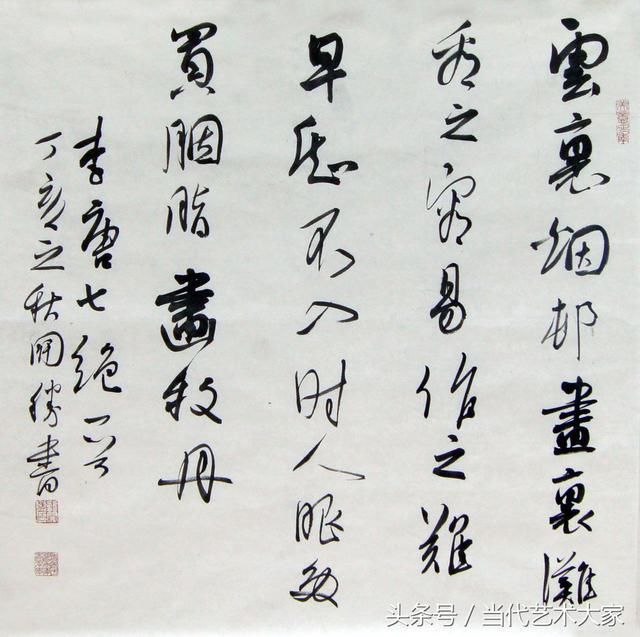 雲裏烟邨畫裏灘
看之容易作之難
早知不入时人眼多
買胭脂畫牡丹
李唐七絕一首
丁亥之秋開勝書
头条号 / 当代艺术大家